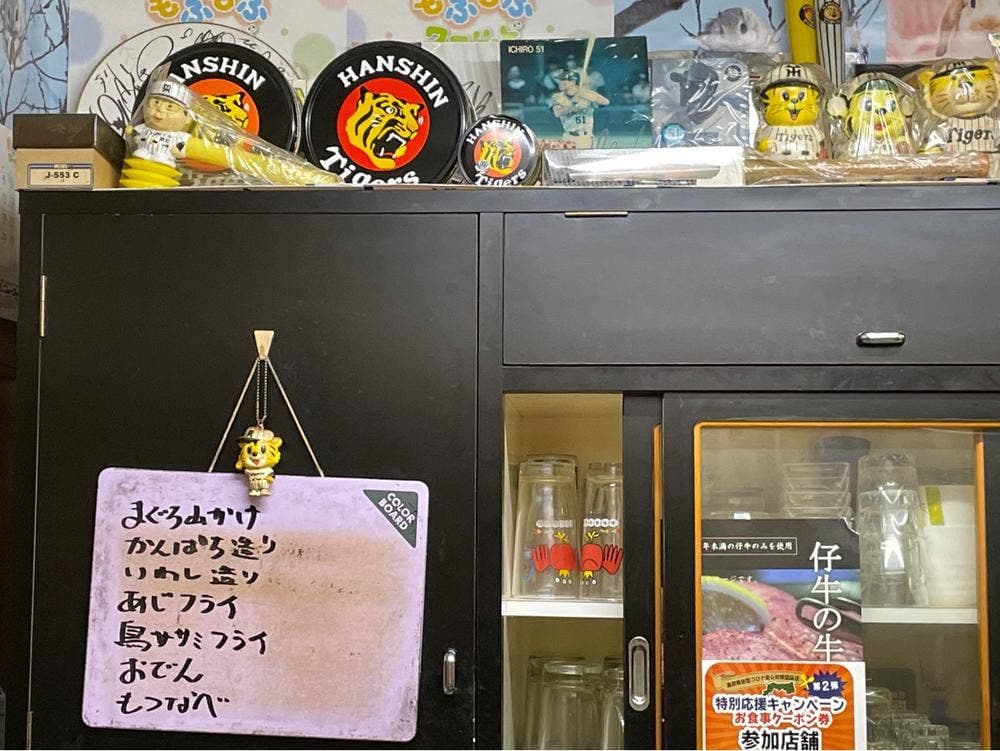 もふもふ
もふもふ
ワールド
HANSHIN
Tigers
HANSHIN
Tigers
ICHIRO 51
51
Tigers
Tigers
J-553 C
COLOR
BOARD
まぐろ山かけ
かんぱち造り
いわし造り
あじフライ
鳥ササミフライ
おでん
もつなべ
年未満の仔牛のみを使用
仔牛の牛
第2弾
特別応援キャンペーン
お食事クーポン券
参加店舗